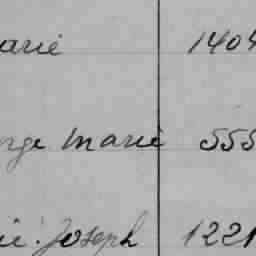 arie 1404
orge Marie 555
ie. Joseph 1221